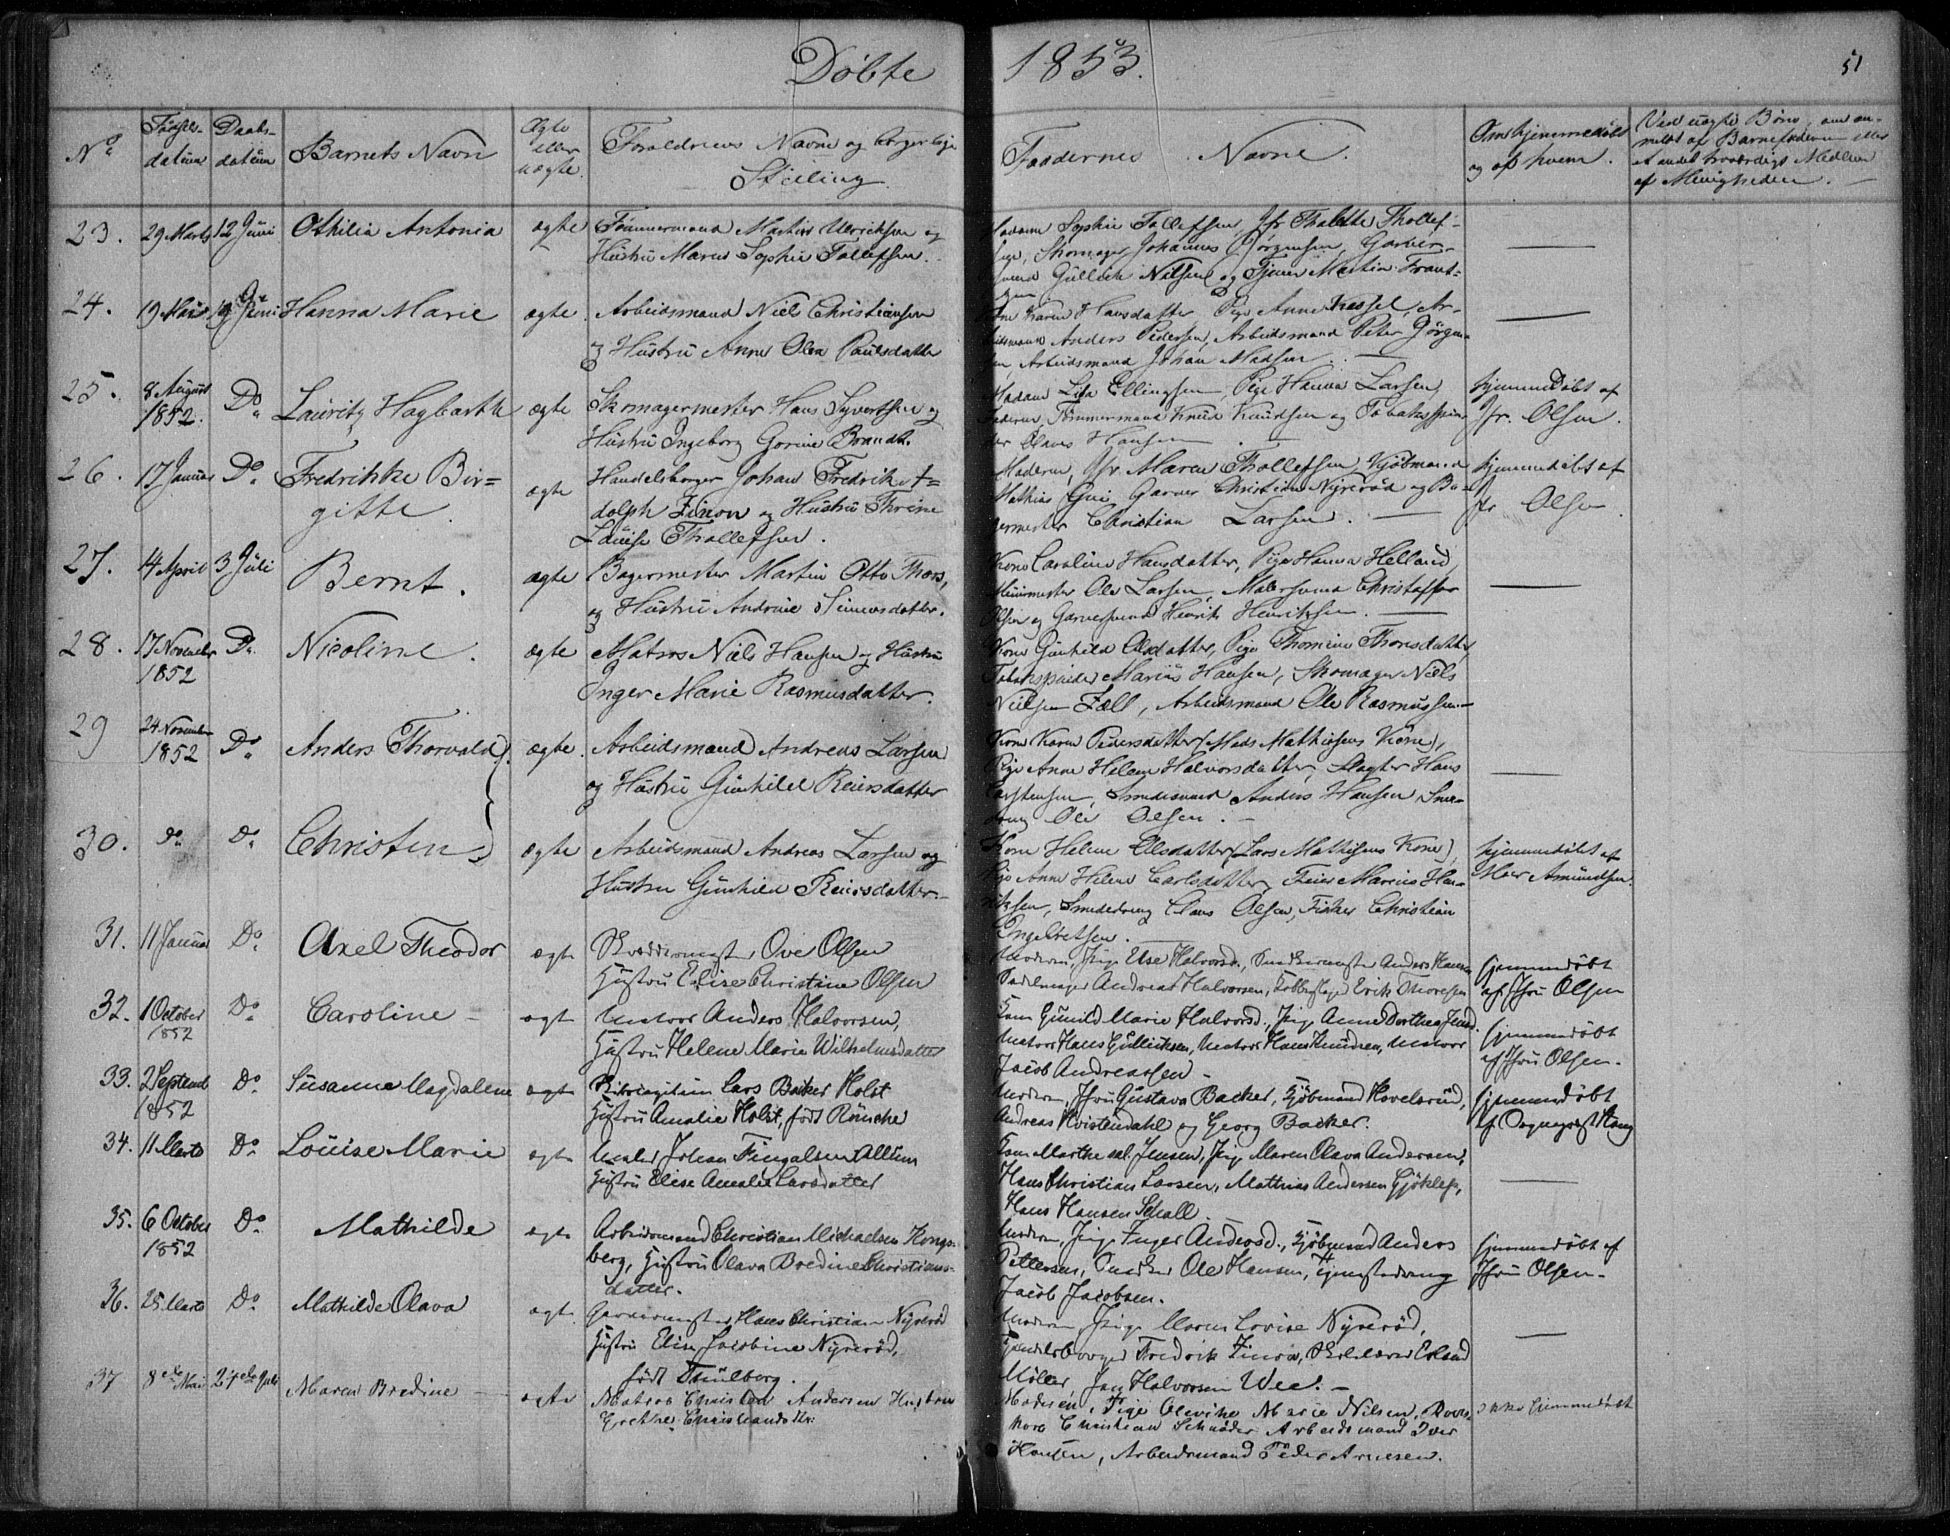 Døbte 1853.
51
No
Fødsels-
datum
Daabs-
datum
Barnets Navn
Ægte
eller
uægte.
Forældrenes Navne og borgerlige
Stilling.
Faddernes Navne.
Om hjemmedøbt
og af hvem.
Ved uægte Børn, om an-
meldt af Barnefaderen eller
et andet troværdigt Medlem
af Menigheden.
23. 29 Marts 12 Juni Othilia Antonia ægte Tømmermand Martin Ulrichsen og
Hustru Maren Sophie Tollefsen.
Madam Sophie Tollefsen, Jfr Thalette Thollef-
sen, Skomager Johannes Jørgensen, Garver-
svend Gullich Nilsen og Tjener Martin Frant-
24. 19 Marts 19 Juni Hanna Marie ægte. Arbeidsmand Niels Christiansen
og Hustru Anne Olea Paulsdatter
Kone Karen Hansdatter, Pige Anne Kassel, Ar-
beidsmand Anders Pedersen, Arbeidsmand Peter Jørgen-
sen, Arbeidsmand Johan Madsen.
25. 8 August
1852. Do Lauritz Hagbarth ægte Skomagermester Hans Syvertsen og
Hustru Ingeborg Gorine Brandt.
Madam Lisa Ellingsen, Pige Hanna Larsen,
Faderen, Tømmermand Knud Knudsen og Tobaksspin-
der Claus Hansen
hjemmedøbt af
Jfr. Olsen.
26. 17 Januar Do Fredrikke Bir-
gitte. ægte Handelsborger Johan Fredrik A-
dolph Zinow og Hustru Thrine
Louise Thollefsen.
Moderen, Jfr. Maren Thollefsen, Kjøbmand
Mathias Gui, Garver Christian Nyrerød og Ba-
germester Christian Larsen.
hjemmedøbt af
Jfr Olsen
27. 14 April 3 Juli Bernt. ægte Bagermester Martin Otto Thors,
og Hustru Andrine Simensdatter.
Kone Caroline Hansdatter, Pige Hanna Helland,
Muurmester Ole Larsen, Malersvend Christoffer
Olsen og Garversvend Henrik Henriksen.
28. 17 November
1852 Do Nicoline. ægte Matros Niels Hansen og Hustru
Inger Marie Rasmusdatter.
Kone Gunhild Olsdatter, Pige Thomine Thorsdatter,
Tobakspinder Marius Hansen, Skomager Niels
Nielsen Fæll, Arbeidsmand Ole Rasmussen.
29 24 November
1852 Do Anders Thorvald ægte. Arbeidsmand Andreas Larsen
og Hustru Gunhild Reiersdatter
Kone Karen Pedersdatter (Mads Mathisens Kone),
Pige Anne Helene Halvorsdatter, Slagter Hans
Carstensen, Smedesvend Anders Hansen, Sme-
dreng Ole Olsen.
30. do Do Christen ægte Arbeidsmand Andreas Larsen og
Hustru Gunhild Reiersdatter.
Kone Helene Olsdatter (Lars Mathisens Kone),
Pige Anne Helene Carlsdatter, Feier Marius Hen-
riksen, Smededreng Claus Olsen, Fisker Christian
Engebretsen.
hjemmedøbt af
Moer Amundsen.
31. 11 Januar Do Axel Theodor ægte Skræddermester Ove Olsen
Hustru Elise Christine Olsen
Moderen, Pige Else Halvorsd., Snedkermester Anders Hansen,
Sadelmager Andreas Halvorsen, Kobberslager Erik Thoresen
hjemmedøbt
af Jfru Olsen
32. 1 October
1852 Do Caroline ægte Matros Anders Halvorsen,
Hustru Helene Marie Wilhelmsdatter
Kone Gunild Marie Halvorsd., Pige Anne Dorthea Jensd.
Matros Hans Gulliksen, Matros Hans Knudsen, Matros
Jacob Andreassen
hjemmedøbt
af Jfru Olsen.
33. 2 Septemb
1852 Do Susanne Magdalene ægte Skibscapitain Lars Backer Holst
Hustru Amalie Holst, født Röncke
Moderen, Jfru Gustava Backer, Kjøbmand Hovelsrud,
Andreas Hvistendahl og Georg Backer.
hjemmedøbt
af Sognepræst Stang
34. 11 Marts Do Louise Marie ægte Maler Johan Fingalsen Allum
Hustru Elise Amalia Larsdatter
Kone Marthe sal. Jensen, Pige Maren Olava Andersen,
Hans Christian Larsen, Mathias Andersen Gjøklep,
Hans Hansen Schall.
35. 6 October
1852 Do Mathilde ægte Arbeidsmand Christian Michaelsen Kongs-
berg, Hustru Olava Bredine Christians-
datter.
Moderen, Pige Inger Andersd., Kjøbmand Anders
Pettersen, Snedker Ole Hansen, Tjenestedreng
Jacob Jacobsen.
hjemmedøbt af
Jfru Olsen.
36. 25 Marts Do Mathilde Olava ægte Garvermester Hans Christian Nyrerød
Hustru Elise Jacobine Nyrerød,
født Thulberg.
Moderen, Pige Maren Lovise Nyrerød,
Handelsborger Fredrik Zinow, Skolelærer Erland
Möller, Jens Halvorsen Wee.
37 8de Mai 24de Juli Maren Bredine ægte Matros Christen Andersen Hustru
Grethe Christiansdtr:
Moderen, Pige Olevine Marie Nilsen,
Christian Schrøder Arbeidsmand Iver
Hansen, Arbeidsmand Peder Arnesen.
ikke hjemmedøbt